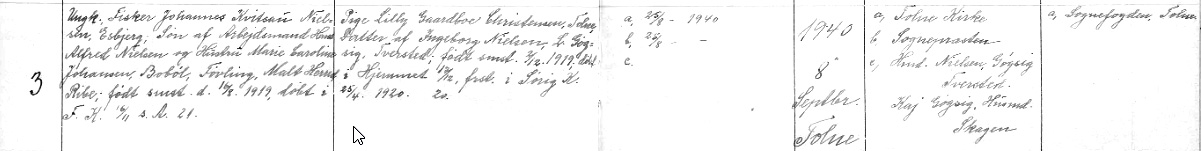 3
Ungk. Fisker Johannes Kvitsau Niel-
sen, Esbjerg; Søn af Arbejdsmand Hans
Alfred Nielsen og Hustru Marie Caroline
Johansen, Boböl, Fövling, Malt Herred
Ribe; født smst. d. 1919, døbt i
F. K. s. A. 21.
Pige Lilly Gaardboe Christensen, Tolne,
Datter af Ingeborg Nielsen, L. Gög-
sig, Tversted; født smst. 1919, døbt
i Hjemmet frst. i Sörig K.
25/4. 1920. 20.
a, 25/8 - 1940
b, 25/8 - -
c.
1940
8
Septbr.
Tolne
a, Tolne Kirke
b, Sognepræsten
c, Hmd. Nielsen, Gögsig
Tversted.
Kaj Gögsig, Husmd.
Skagen
a, Sognefogden, Tolne